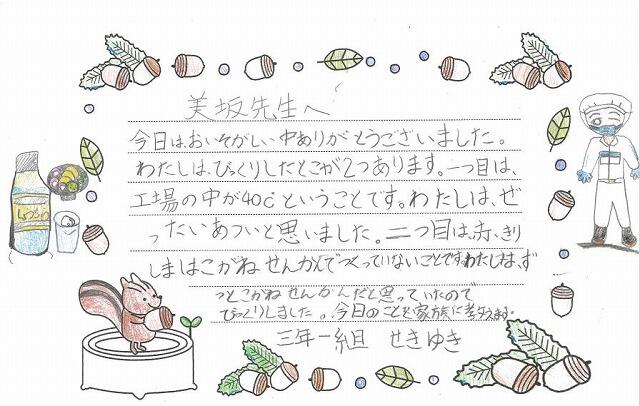 美坂先生へ
今日はおいそがしい中ありがとうございました。
わたしは、びっくりしたとこが2つあります。一つ目は、
工場の中が40℃ということです。わたしは、ぜ
ったいあついと思いました。二つ目は、赤、きり
しまはこがねせんがんでつくっていないことです。わたしは、ず
っとこがねせんがんだと思っていたので
びっくりしました。今日のことを家族に考えます。
三年一組 せきゆき